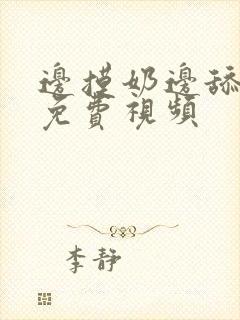 邊摸奶邊舔
免費視頻
李靜